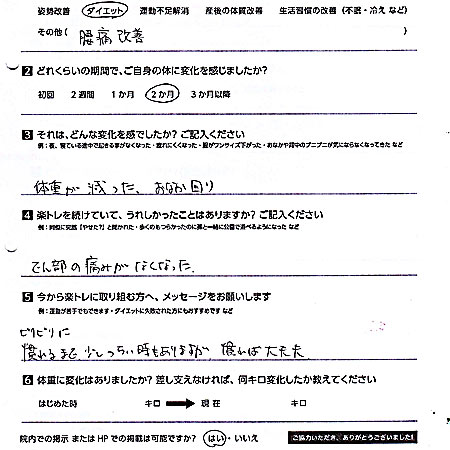 姿勢改善 ダイエット 運動不足解消 産後の体質改善 生活習慣の改善(不眠・冷え など)
その他( 腰痛改善 )
2 どれくらいの期間で、ご自身の体に変化を感じましたか?
初回 2週間 1か月 2か月 3か月以降
3 それは、どんな変化を感でしたか? ご記入ください
例:夜、寝ている途中で起きる事がなくなった・疲れにくくなった・服がワンサイズ下がった・おなかや背中のプニプニが気にならなくなってきた など
体重が減った、おなか回り
4 楽トレを続けていて、うれしかったことはありますか? ご記入ください
例:同僚に突然「やせた?」と聞かれた・歩くのもつらかったのに孫と一緒に公園で遊べるようになった など
でん部の痛みがなくなった
5 今から楽トレに取り組む方へ、メッセージをお願いします
例:運動が苦手でもできます・ダイエットに失敗された方にもおすすめです など
ビリビリに
慣れるまで少しつらい時もありますが、慣れば大丈夫
6 体重に変化はありましたか? 差し支えなければ、何キロ変化したか教えてください
はじめた時 キロ ➡ 現在 キロ
院内での掲示 または HP での掲載は可能ですか? はい・いいえ ご協力いただき、ありがとうございました!